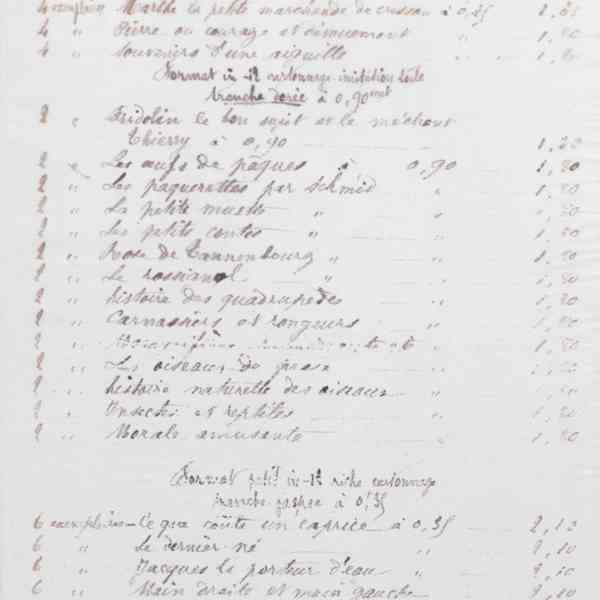 4 exempl. Marthe la petite marchande de cresson à 0,35 1,40
4 " Pierre ou courage et dénuement " 1,40
4 " Souvenirs d'une aiguille " 1,40
Format in-12 cartonnage imitation toile
tranche dorée à 0,90 cent
2 " Fridolin le bon sujet et le méchant
Thierry à 0,90 1,80
2 " Les œufs de pâques à 0,90 1,80
2 " Les pâquerettes par Schmid " 1,80
2 " La petite muette " 1,80
2 " Les petits contes " 1,80
2 " Rose de Tannenbourg " 1,80
2 " Le rossignol " 1,80
2 " histoire des quadrupèdes " 1,80
2 " Carnassiers et rongeurs " 1,80
2 " " 1,80
2 " Les oiseaux de "
2 " histoire naturelle des oiseaux "
2 " Insectes et reptiles " 1,80
2 " Morale amusante " 1,80
Format petit in-12 riche cartonnage
tranche jaspée à 0,35
6 exemplaires Ce que coûte un caprice à 0,35 2,10
6 " Le dernier né " 2,10
6 " Jacques le porteur d'eau " 2,10
6 " Main droite et main gauche " 2,10